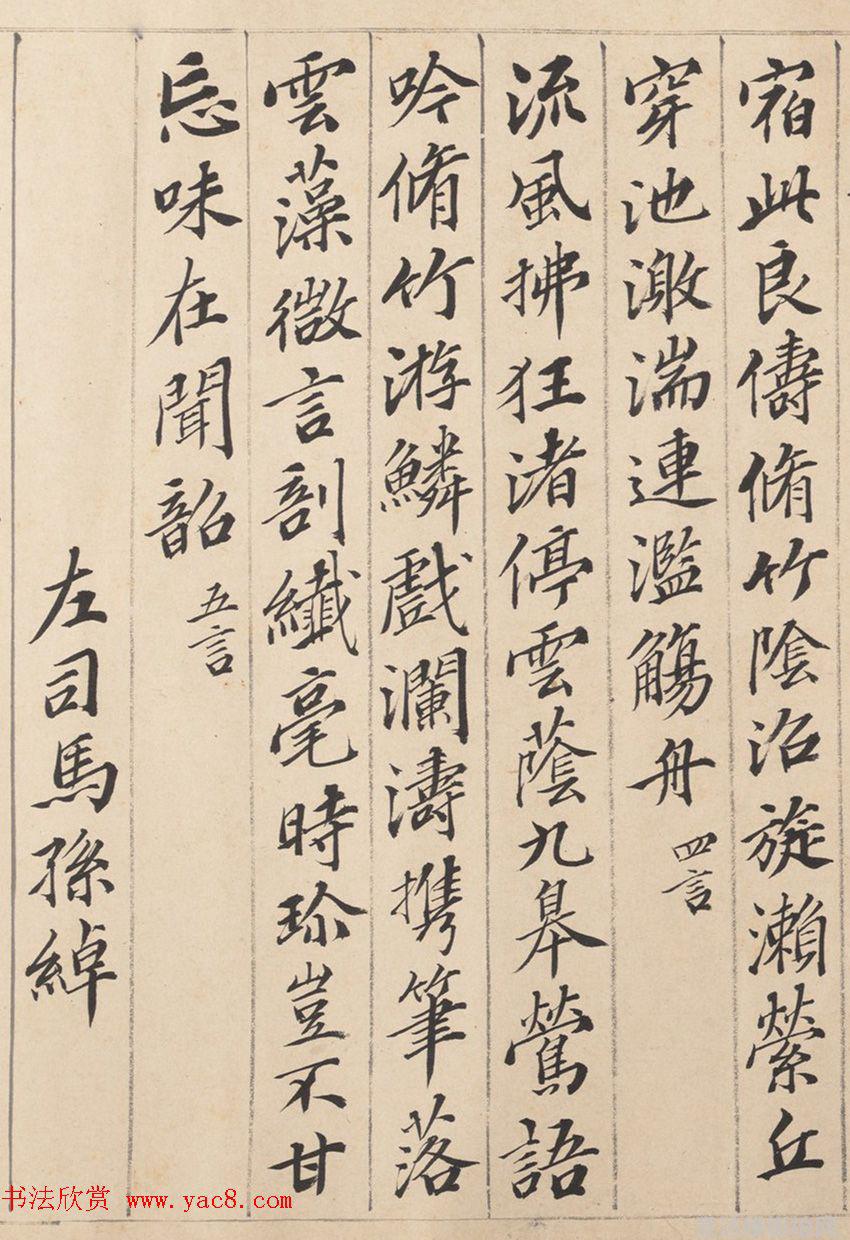 宿此良儔脩竹陰沼旋瀨縈丘
穿池激湍連濫觴舟 四言
流風拂狂渚停雲蔭九皋鶯語
吟脩竹游鱗戲瀾濤携筆落
雲藻微言剖纖毫時珍豈不甘
忘味在聞韶 五言
左司馬孫綽
书法欣赏 www.yac8.com